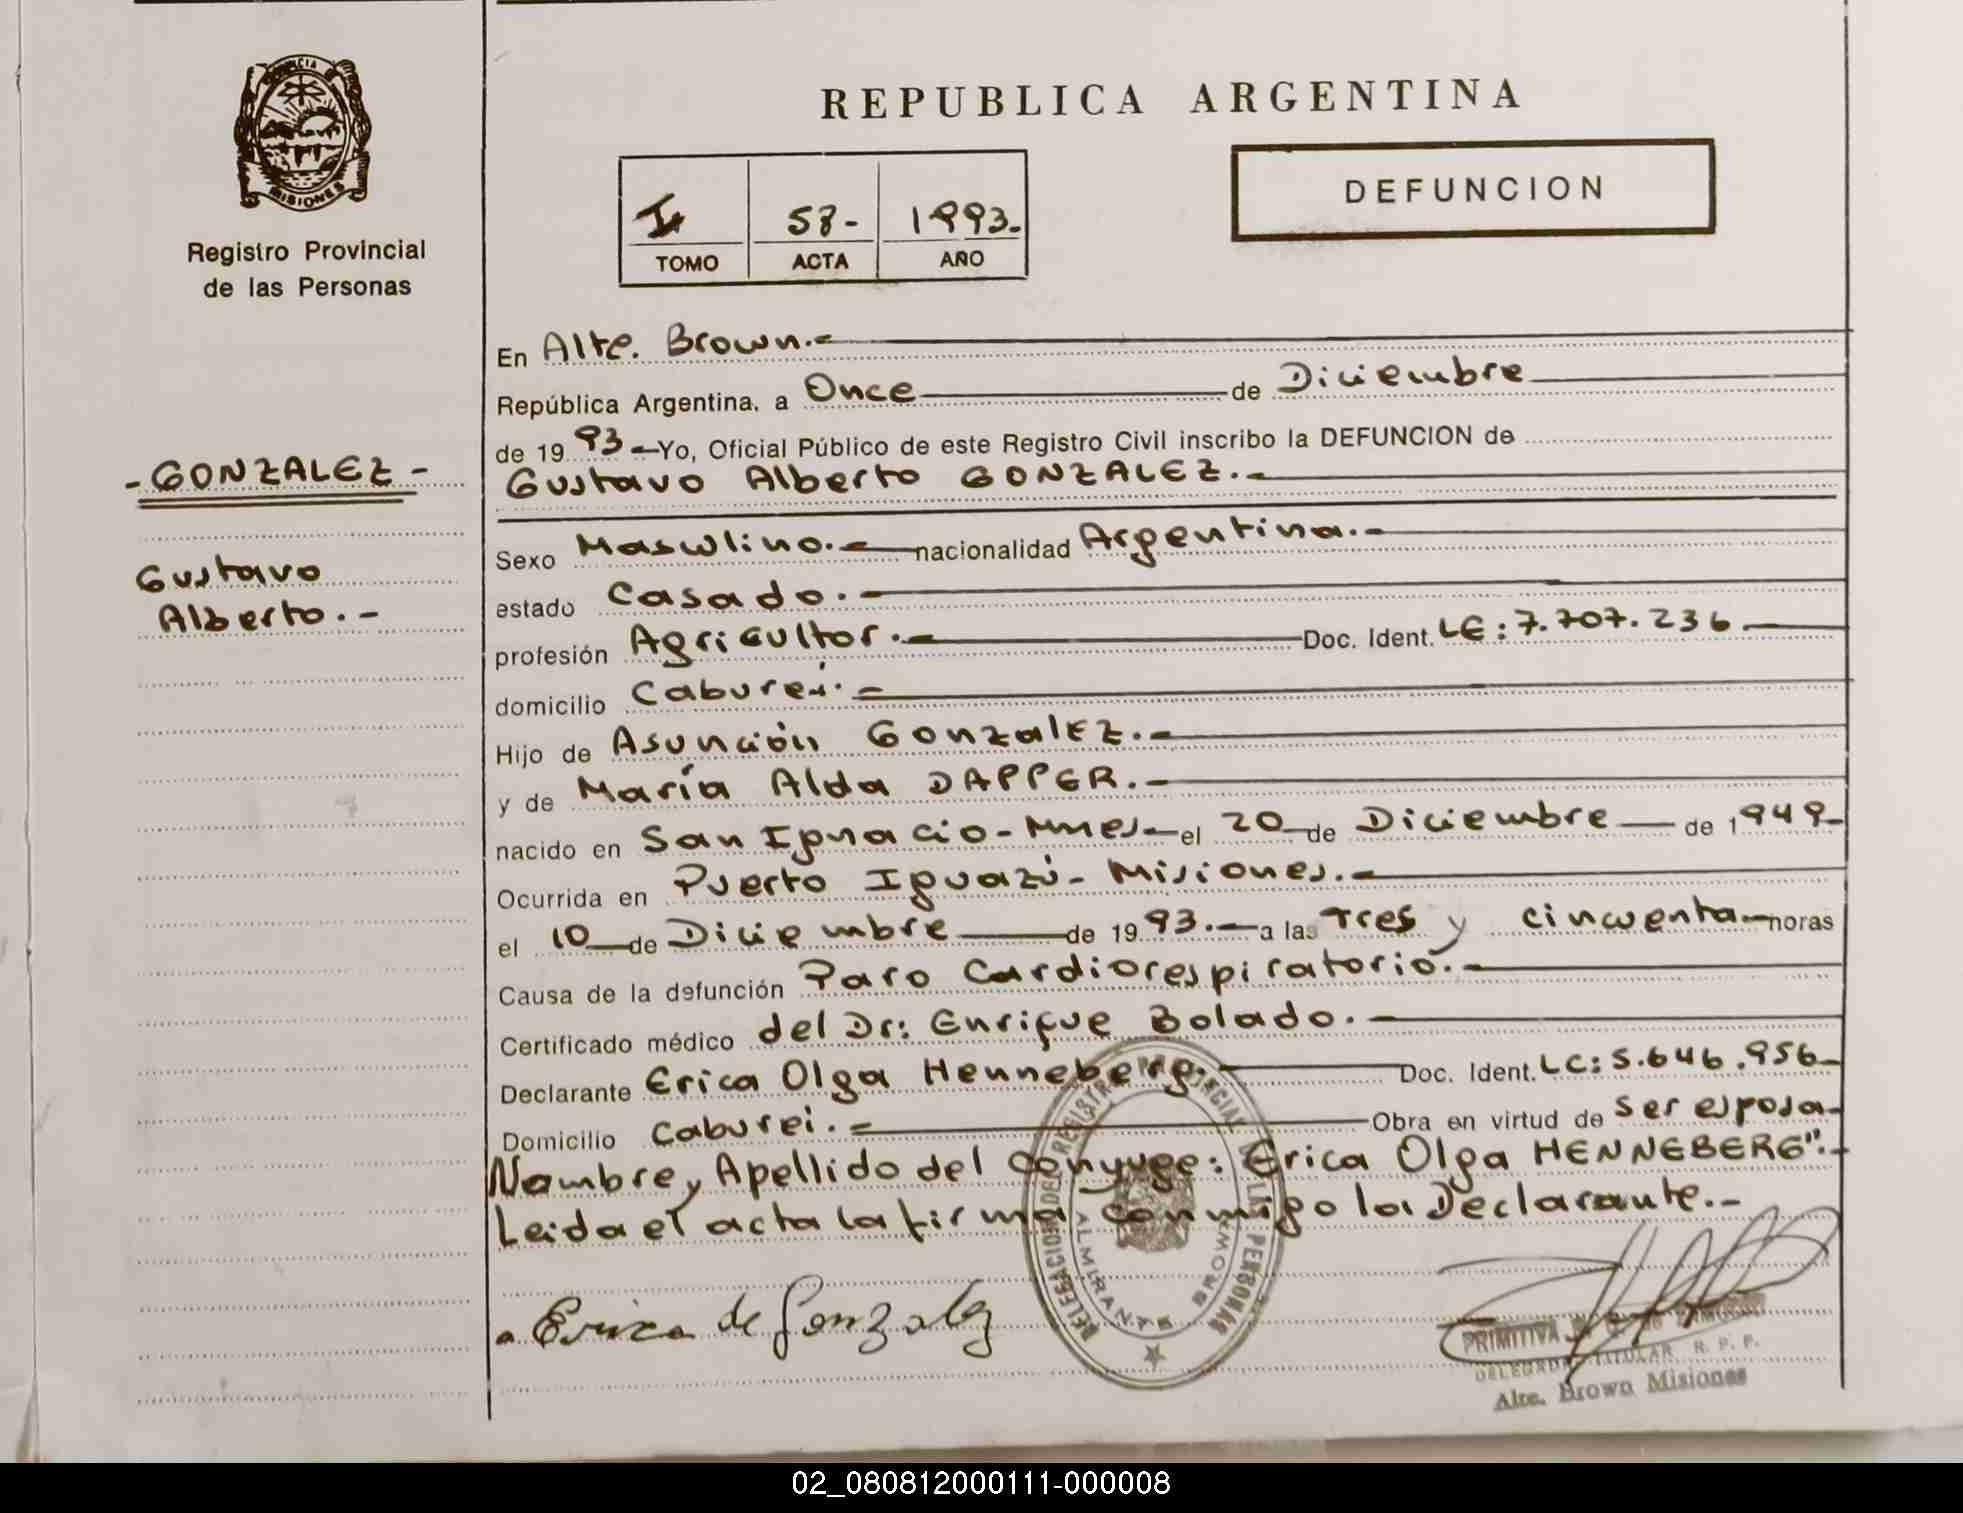 PROVINCIA DE
MISIONES
Registro Provincial
de las Personas
- GONZALEZ -
Gustavo
Alberto.-
REPUBLICA ARGENTINA
DEFUNCION
I 58- 1993.
TOMO ACTA AÑO
En Alte. Brown.-
República Argentina, a Once de Diciembre
de 19 93 Yo, Oficial Público de este Registro Civil inscribo la DEFUNCION de
Gustavo Alberto GONZALEZ.-
Sexo Masculino.- nacionalidad Argentina.-
estado Casado.-
profesión Agricultor.- Doc. Ident. LE: 7.707.236
domicilio Caburei.-
Hijo de Asunción GonzalEZ.-
y de María Alda DAPPER.-
nacido en San Ignacio-Mnes- el 20 de Diciembre de 1949-
Ocurrida en Puerto Iguazú- Misiones.-
el 10 de Diciembre de 19 93.- a las Tres y cincuenta horas
Causa de la defunción Paro Cardiorespiratorio.-
Certificado médico del Dr: Enrique Bolado.-
Declarante Erica Olga Henneberg.- Doc. Ident. LC: 5.646.956-
Domicilio Caburei.- Obra en virtud de ser esposa-
Nombre y Apellido del Conyuge: Erica Olga HENNEBERG".-
Leida el acta la firma conmigo la Declarante.-
Erica de Gonzalez
DELEGACION DEL REGISTRO PROVINCIAL DE LA PERSONAS
ALMIRANTE BROWN
PRIMITIVA
DELEGADA TITULAR R. P. P.
Alte. Brown Misiones
02_080812000111-000008